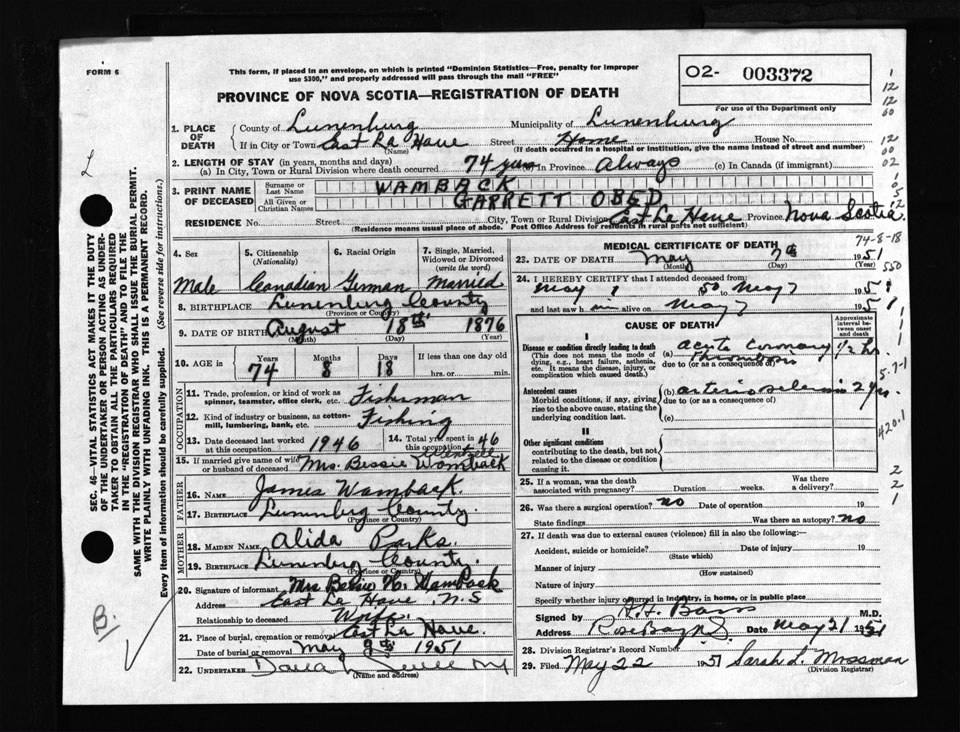 FORM 6
This form, if placed in an envelope, on which is printed "Dominion Statistics—Free, penalty for improper
use $300," and properly addressed will pass through the mail "FREE"
PROVINCE OF NOVA SCOTIA—REGISTRATION OF DEATH
02- 003372
For use of the Department only
1. PLACE OF DEATH
County of Lunenburg Municipality of Lunenburg
If in City or Town East La Have Street Home House No.
(Name) (If death occurred in a hospital or institution, give the name instead of street and number)
2. LENGTH OF STAY (in years, months and days)
(a) In City, Town or Rural Division where death occurred 74 yrs In Province Always (c) In Canada (if immigrant)
3. PRINT NAME OF DECEASED
Surname or Last Name WAMBACK
All Given or Christian Names GARRETT OBED
RESIDENCE No. Street City, Town or Rural Division East La Have Province Nova Scotia
(Residence means usual place of abode. Post Office Address for residents in rural parts not sufficient)
4. Sex Male
5. Citizenship (Nationality) Canadian
6. Racial Origin German
7. Single, Married, Widowed or Divorced (write the word) Married
8. BIRTHPLACE Lunenburg County
(Province or Country)
9. DATE OF BIRTH August 18th 1876
(Month) (Day) (Year)
10. AGE in Years Months Days If less than one day old
74 8 18 hrs. or min.
OCCUPATION
11. Trade, profession, or kind of work as spinner, teamster, office clerk, etc. Fisherman
12. Kind of industry or business, as cotton-mill, lumbering, bank, etc. Fishing
13. Date deceased last worked at this occupation 1946
14. Total yrs. spent in this occupation 46
15. If married give name of wife or husband of deceased Mrs. Bessie Wamback
FATHER
16. NAME James Wamback.
17. BIRTHPLACE Lunenburg County.
(Province or Country)
MOTHER
18. MAIDEN NAME Alida Parks.
19. BIRTHPLACE Lunenburg County.
(Province or Country)
20. Signature of informant Mrs Bessie W. Wamback
Address East La Have, N.S
Relationship to deceased Wife.
21. Place of burial, cremation or removal East La Have.
Date of burial or removal May 9th 1951
22. UNDERTAKER
(Name and address)
MEDICAL CERTIFICATE OF DEATH
23. DATE OF DEATH May 7th 1951
(Month) (Day) (Year)
24. I HEREBY CERTIFY that I attended deceased from:
May 1 50 to May 7 1951
and last saw him alive on May 7 1951
CAUSE OF DEATH
Approximate interval between onset and death
I
Disease or condition directly leading to death
(This does not mean the mode of dying, e.g., heart failure, asthenia, etc. It means the disease, injury, or complication which caused death.)
(a) acute coronary thrombosis ½ hr.
due to (or as a consequence of)
Antecedent causes
Morbid conditions, if any, giving rise to the above cause, stating the underlying condition last.
(b) arteriosclerosis 2 yrs.
due to (or as a consequence of)
(c)
II
Other significant conditions
contributing to the death, but not related to the disease or condition causing it.
25. If a woman, was the death associated with pregnancy? Duration weeks. Was there a delivery?
26. Was there a surgical operation? no Date of operation 19
State findings Was there an autopsy? no
27. If death was due to external causes (violence) fill in also the following:—
Accident, suicide or homicide? Date of injury 19
(State which)
Manner of injury
(How sustained)
Nature of injury
Specify whether injury occurred in industry, in home, or in public place
Signed by M.D.
Address Rose Bay N.S. Date May 21 1951
28. Division Registrar's Record Number
29. Filed May 22 1951 Sarah L. Mossman
(Division Registrar)
SEC. 46—VITAL STATISTICS ACT MAKES IT THE DUTY
OF THE UNDERTAKER OR PERSON ACTING AS UNDERTAKER TO OBTAIN ALL THE PARTICULARS REQUIRED
IN THE "REGISTRATION OF DEATH" AND TO FILE THE
SAME WITH THE DIVISION REGISTRAR WHO SHALL ISSUE THE BURIAL PERMIT.
WRITE PLAINLY WITH UNFADING INK. THIS IS A PERMANENT RECORD.
Every item of information should be carefully supplied. (See reverse side for instructions.)
L
B.
1
12
12
60
12
00
02
1
0
5
12
74-8-18
550
5-7-1
420.1
2
2
1